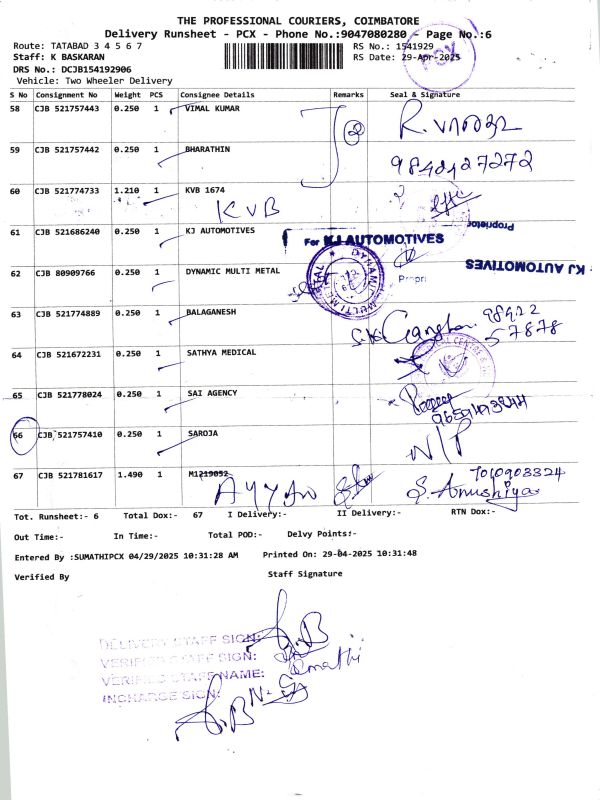 THE PROFESSIONAL COURIERS, COIMBATORE
Delivery Runsheet - PCX - Phone No.:9047080280 - Page No.:6
Route: TATABAD 3 4 5 6 7 RS No.: 1541929
Staff: K BASKARAN RS Date: 29-Apr-2025
PCX
DRS No.: DCJB154192906
Vehicle: Two Wheeler Delivery
S No Consignment No Weight PCS Consignee Details Remarks Seal & Signature
58 CJB 521757443 0.250 1 VIMAL KUMAR
2
59 CJB 521757442 0.250 1 BHARATHIN
60 CJB 521774733 1.210 1 KVB 1674
KVB
Proprietor
61 CJB 521686240 0.250 1 KJ AUTOMOTIVES
For KJ AUTOMOTIVES
KJ AUTOMOTIVES
62 CJB 80909766 0.250 1 DYNAMIC MULTI METAL
DYNAMIC MULTI METAL
Propri
63 CJB 521774889 0.250 1 BALAGANESH
98422
57878
64 CJB 521672231 0.250 1 SATHYA MEDICAL
65 CJB 521778024 0.250 1 SAI AGENCY
66 CJB 521757410 0.250 1 SAROJA
N/P
67 CJB 521781617 1.490 1 M1219052
7010903324
S. Anushiya
Tot. Runsheet:- 6 Total Dox:- 67 I Delivery:- II Delivery:- RTN Dox:-
Out Time:- In Time:- Total POD:- Delvy Points:-
Entered By :SUMATHIPCX 04/29/2025 10:31:28 AM Printed On: 29-04-2025 10:31:48
Verified By Staff Signature
DELIVERY STAFF SIGN:
VERIFIED STAFF SIGN:
VERIFIED STAFF NAME:
INCHARGE SIGN: